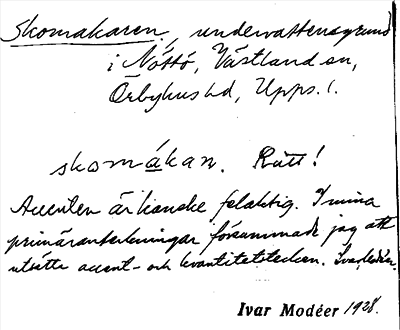 Skomakaren, undervattensgrund
i Nåttö, Västland sn,
Örbyhus hd, Upps. l.
skomákan. Rätt!
Accenten är kanske felaktig. I mina
primäranteckningar försummade jag att
utsätta accent- och kvantitetstecken.
Ivar Modéer 1928.